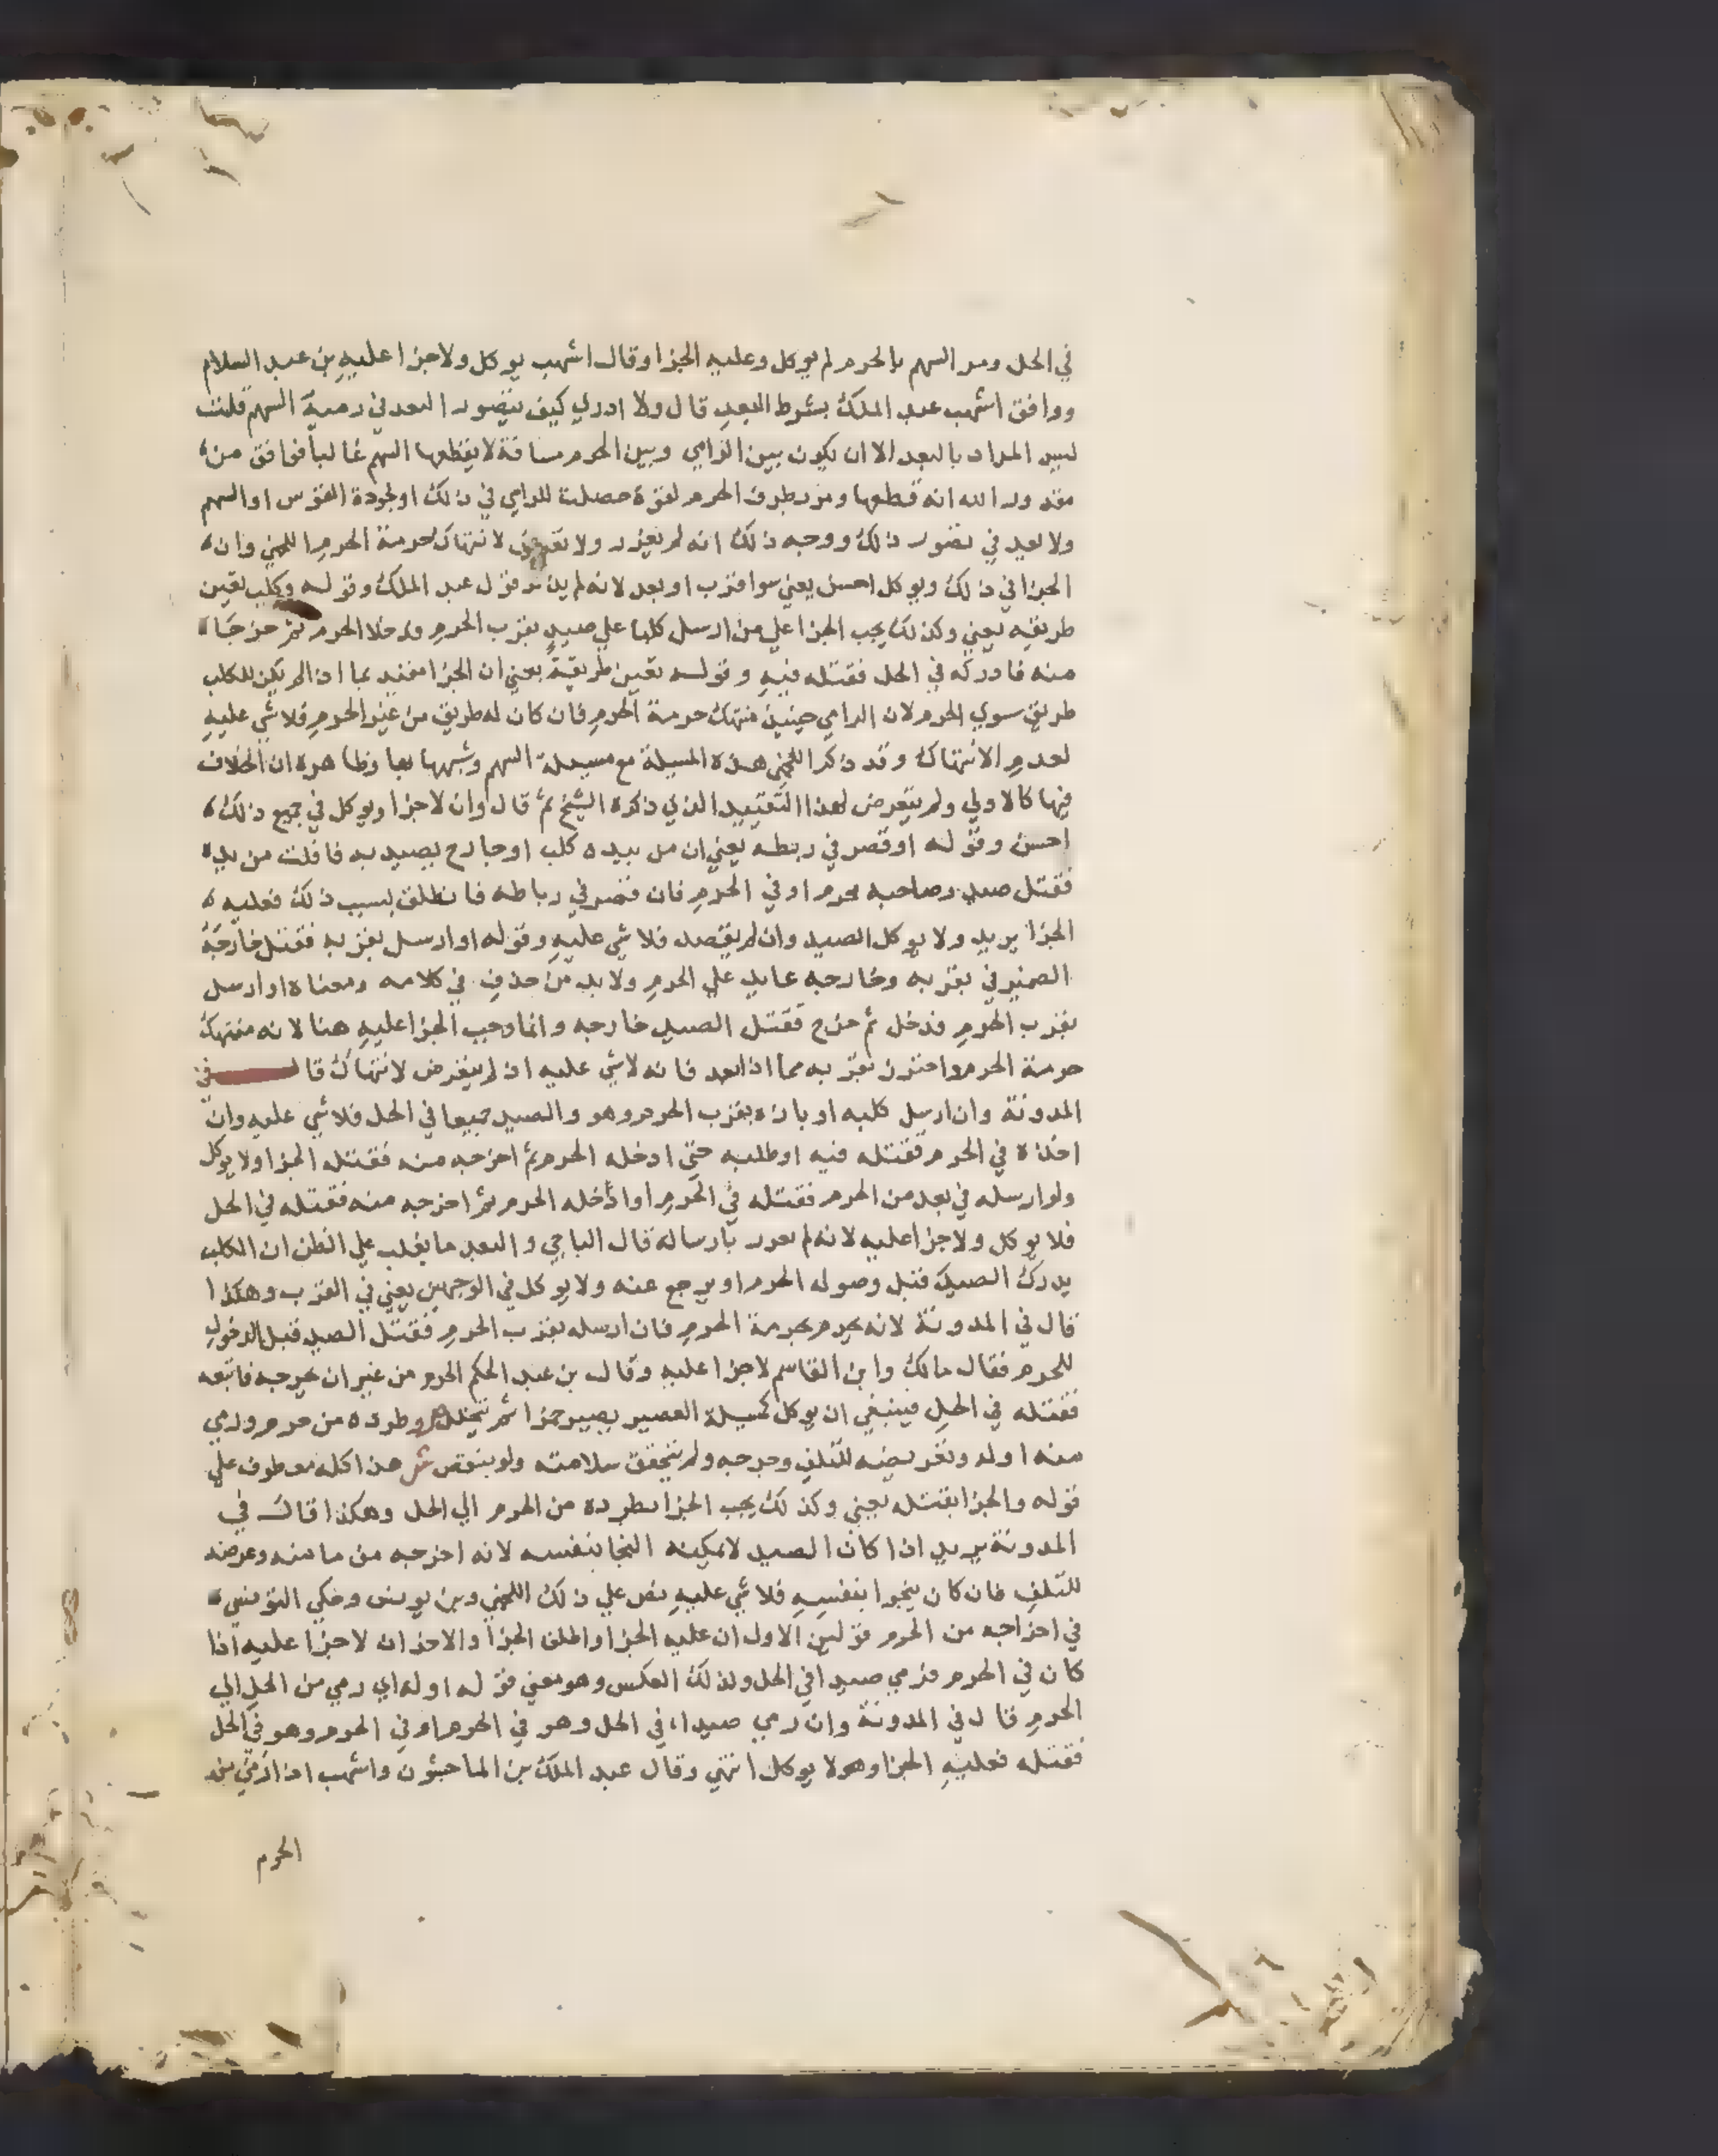 في الحل ومر السهم بالحرم لم يوكل وعليه الجزا وقال اشهب يوكل ولا جزا عليه بن عبد السلام
ووافق اشهب عبد الملك بشرط البعد قال ولا ادري كيف يتصور البعد في رمية السهم قلت
ليس المراد بالبعد الا ان يكون بين الرامي وبين الحرم مسافة لا يقطعها السهم غالبا فوافق من
مقدور الله انه قطعها ومر بطرف الحرم لقوة حصلت للرامي في ذلك او لجودة القوس او السهم
ولا بعد في تصور ذلك ووجه ذلك انه لم يغرر ولا تعرض لانتهاك حرمة الحرم اللخمي وان
الجزا في ذلك ويوكل احسن يعني سوا قرب او بعد لانه لم يذكر قول عبد الملك وقوله وكلب تعين
طريقه يعني وكذلك يجب الجزا علي من ارسل كلبا علي صيد بقرب الحرم ودخلا الحرم ثم خرجا
منه فادركه في الحل فقتله فيه وقوله تعين طريقة يعني ان الجزا مقيد بما اذا لم يكن للكلب
طريق سوي الحرم لان الرامي حينيذ منتهك حرمة الحرم فان كان له طريق من غير الحرم فلا شي عليه
لعدم الانتهاك وقد ذكر اللخمي هذه المسيلة مع مسيلة السهم وشبهها بها وظاهره ان الخلاف
فيها كالاولي ولم يتعرض لهذا التقييد الذي ذكره الشيخ ثم قال وان لا جزا ويوكل في جميع ذلك
احسن وقوله او قصر في ربطه يعني ان من بيده كلب او جارح يصيد به فافلت من يده
فقتل صيد وصاحبه محرم او في الحرم فان قصر في رباطه فانطلق بسبب ذلك فعليه
الجزا يريد ولا يوكل الصيد وان لم يقصد فلا شي عليه وقوله او ارسل بقربه فقتل خارجه
الضمير في بقربه وخارجه عايد علي الحرم ولا بد من حذف في كلامه ومعناه او ارسل
بقرب الحرم فدخل ثم خرج فقتل الصيد خارجه وانما وجب الجزا عليه هنا لانه منتهك
حرمة الحرم واحترز بقربه مما اذا بعد فانه لا شي عليه اذ لم يتعرض لانتهاك قال في
المدونة وان ارسل كلبه او بازه بقرب الحرم وهو والصيد جميعا في الحل فلا شي عليه وان
اخذه في الحرم فقتله فيه او طلبه حتي ادخله الحرم ثم اخرجه منه فقتله الجزا ولا يوكل
ولو ارسله في بعد من الحرم فقتله في الحرم او ادخله الحرم ثم اخرجه منه فقتله في الحل
فلا يوكل ولا جزا عليه لانه لم يغرر بارساله قال الباجي والبعد ما يغلب علي الظن ان الكلب
يدرك الصيد قبل وصوله الحرم او يرجع عنه ولا يوكل في الوجهين يعني في القرب وهكذا
قال في المدونة لانه يحرم بحرمة الحرم فان ارسله بقرب الحرم فقتل الصيد قبل الدخول
للحرم فقال مالك وابن القاسم لا جزا عليه وقال بن عبد الحكم الحرم من غير ان يخرجه فاتبعه
فقتله في الحل فينبغي ان يوكل كمسيلة العصير يصير خمرا ثم يتخلل وطرده من حرم ورمي
منه او له وتعريضه للتلف وجرحه ولم تتحقق سلامته ولو بنقص ش هذا كله معطوف علي
قوله والجزا بقتله يعني وكذلك يجب الجزا بطرده من الحرم الي الحل وهكذا قال في
المدونة يريد اذا كان الصيد لا يمكينه النجا بنفسه لانه اخرجه من مامنه وعرضه
للتلف فان كان ينجوا بنفسه فلا شي عليه نص علي ذلك اللخمي وبن يونس وحكي التونسي
في اخراجه من الحرم قولين الاول ان عليه الجزا واطلق الجزا والاخر ان لا جزا عليه اذا
كان في الحرم فرمي صيدا في الحل ولذلك العكس وهو معني قوله او له اي رمي من الحل الي
الحرم قال في المدونة وان رمي صيدا في الحل وهو في الحرم او في الحرم وهو في الحل
فقتله فعليه الجزا وهو لا يوكل انتهي وقال عبد الملك بن الماجشون واشهب اذا رمي من
الحرم